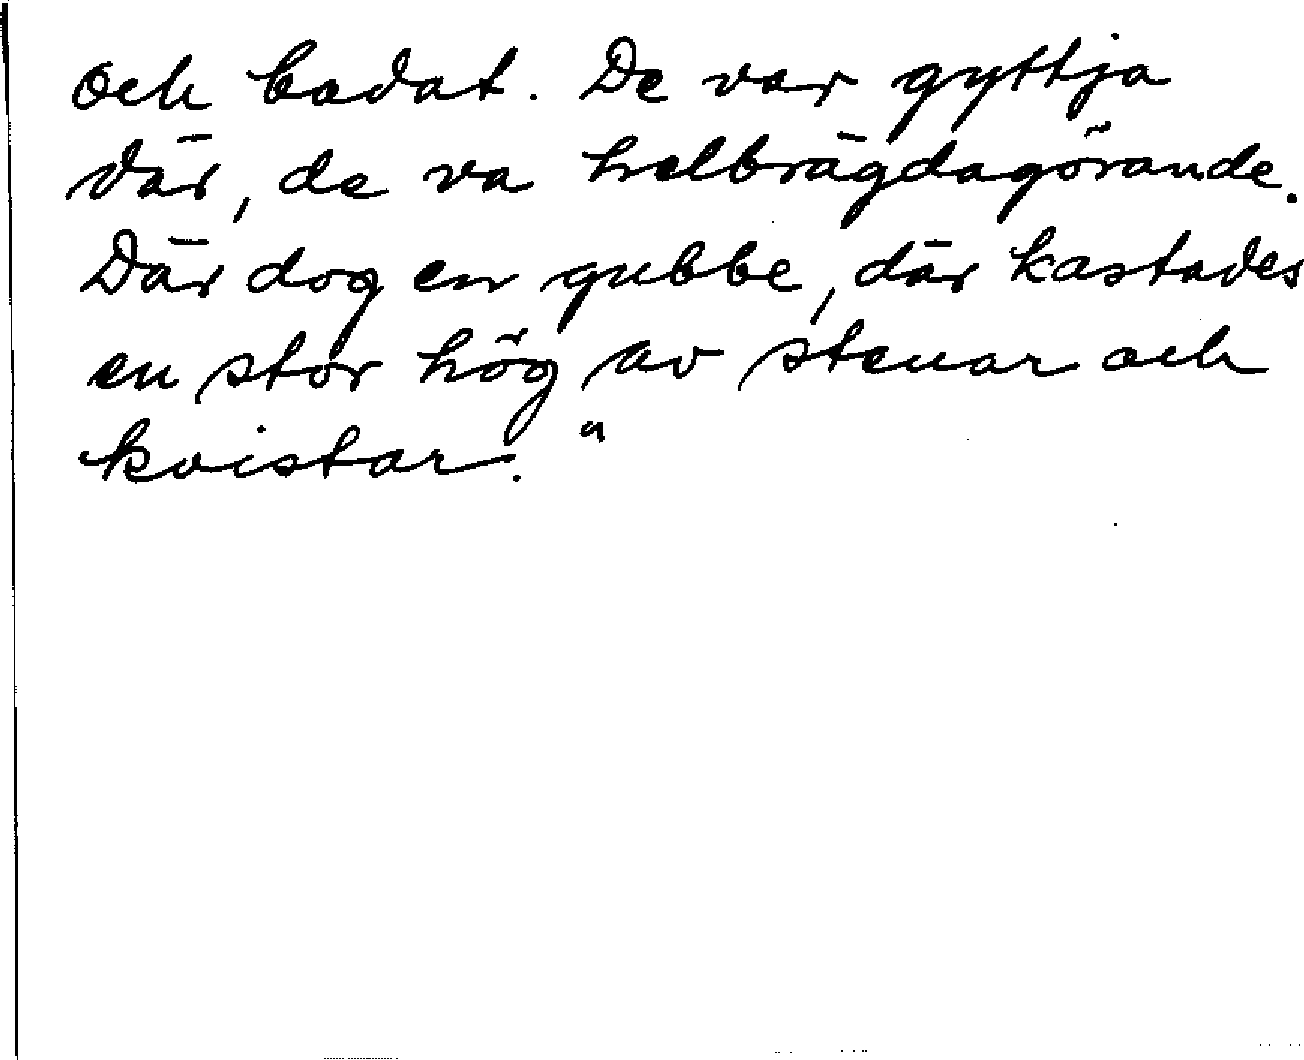 och badat. De var gyttja
där, de va helbrägdagörande.
Där dog en gubbe, där kastades
en stor hög av stenar och
kvistar."